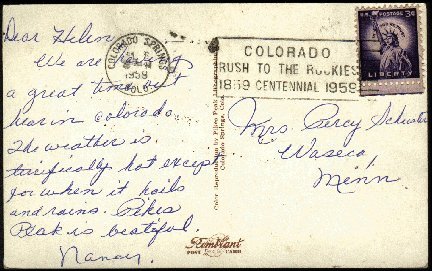 Dear Helen
We are having
a great time out
here in Colorado.
The weather is
terrifically hot except
for when it hails
and rains. Pikes
Peak is beatiful.
Nancy.
COLORADO SPRINGS
1959
COLO.
COLORADO
RUSH TO THE ROCKIES
1859 CENTENNIAL 1959
U.S. POSTAGE 3¢
LIBERTY
Mrs. Percy
Waseca
Minn
Colorado Springs, Colo.
Rembrant
POST CARD